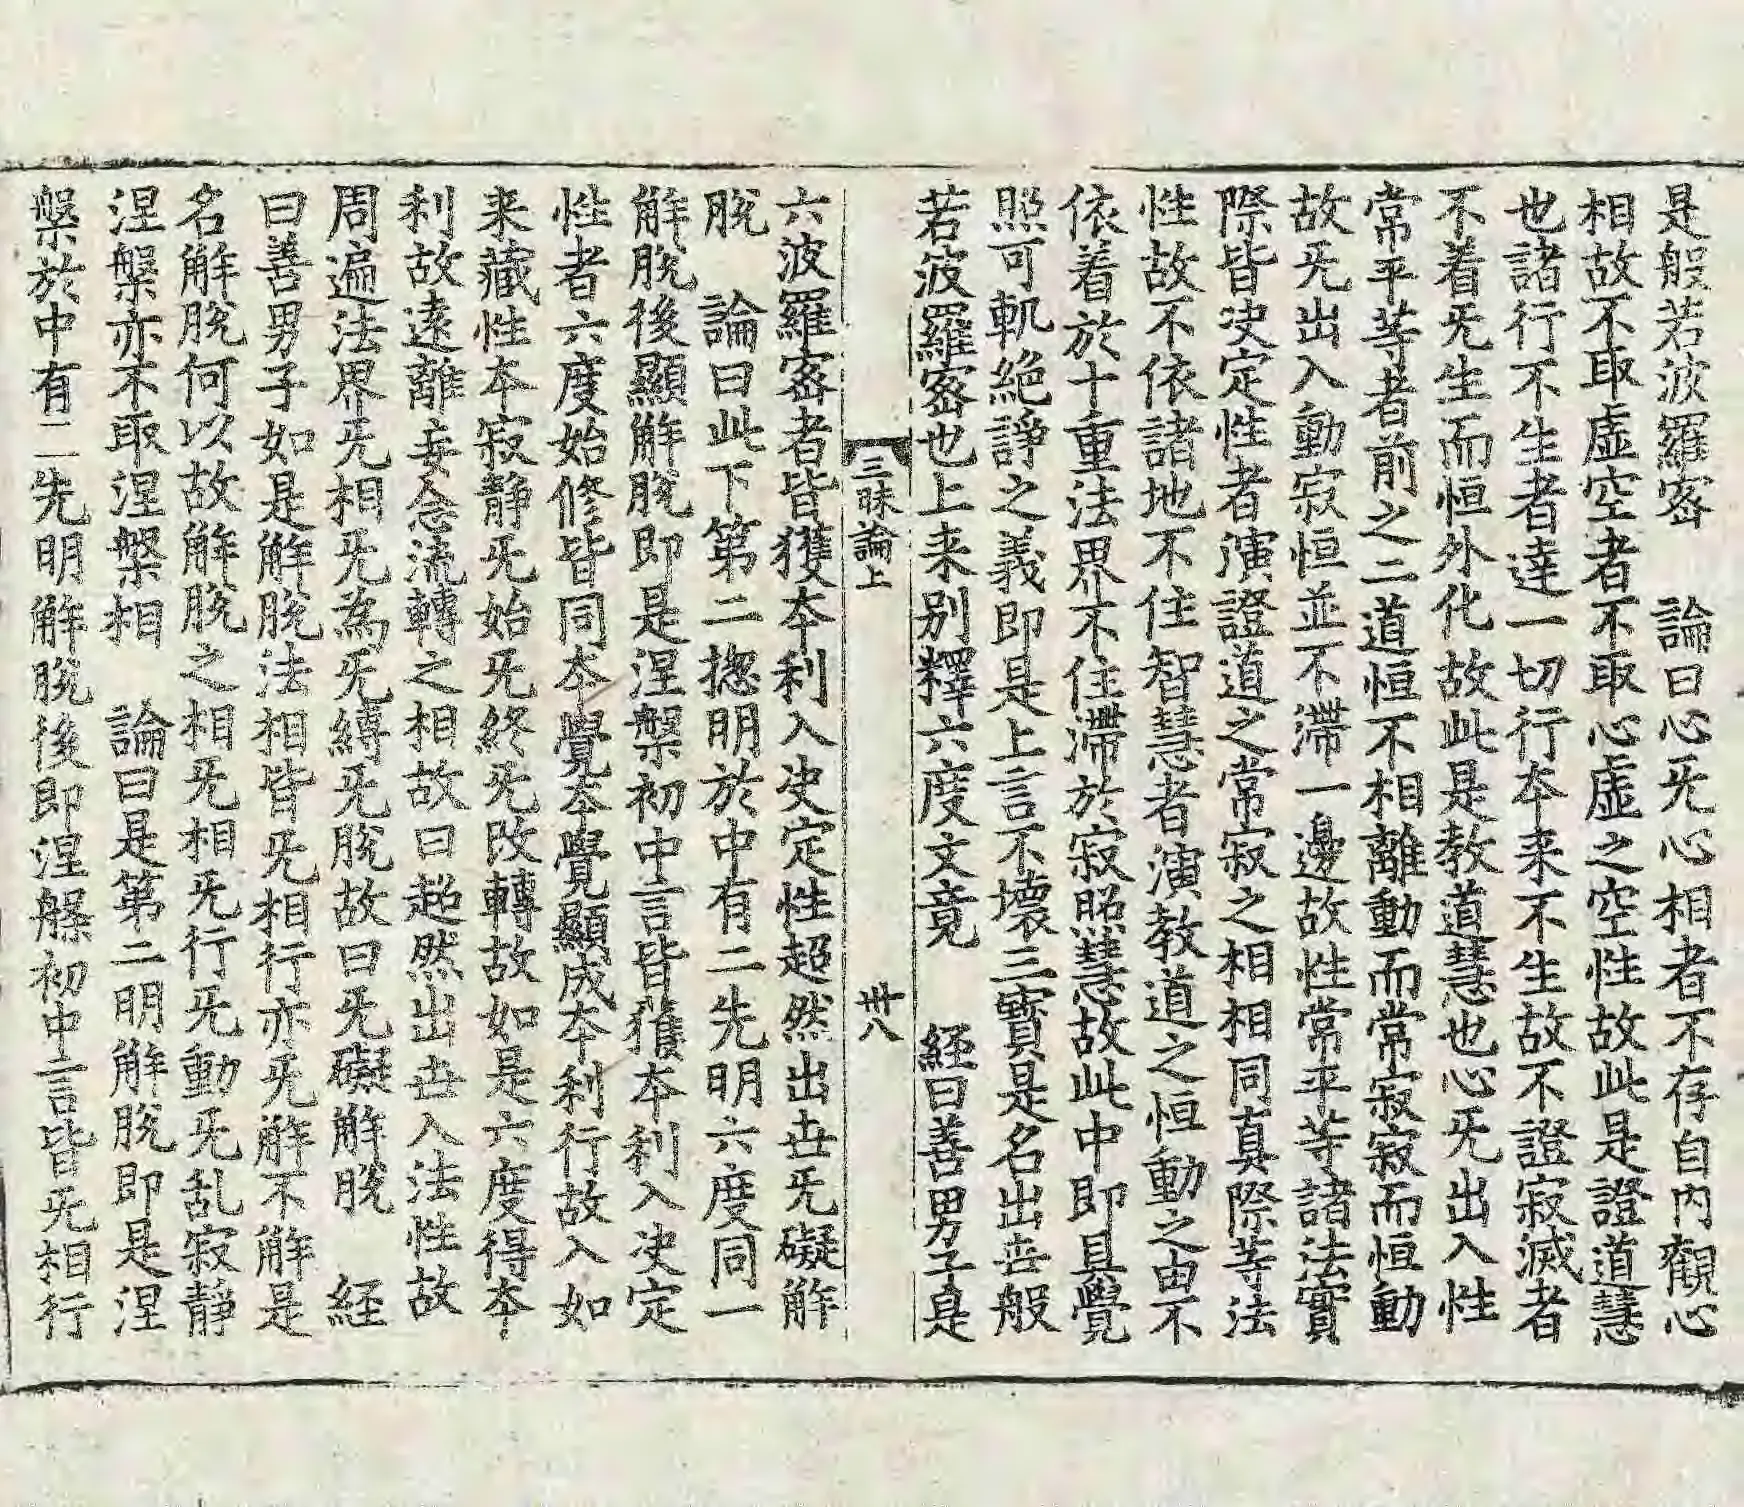 是般若波羅宻　論曰心旡心相者不存自內觀心
相故不取虛空者不取心虛之空性故此是證道慧
也諸行不生者達一切行夲来不生故不證寂滅者
不着旡生而恒外化故此是教道慧也心旡出入性
常平等者前之二道恒不相離動而常寂寂而恒動
故旡出入動寂恒並不滯一邊故性常平等諸法實
際皆决定性者演證道之常寂之相相同真際等法
性故不依諸地不住智慧者演教道之恒動之由不
依着於十重法界不住滯於寂照慧故此中即具覺
照可軌絶諍之義即是上言不壞三寶是名出世般
若波羅宻也上来别釋六度文竟　經曰善男子是
三昧論上　卅八
六波羅宻者皆獲夲利入决定性超然出世旡礙解
脫　論曰此下第二揔明於中有二先明六度同一
解脫後顯解脫即是涅槃初中言皆獲夲利入决定
性者六度始修皆同夲覺夲覺顯成夲利行故入如
来藏性夲寂静旡始旡終旡改轉故如是六度得夲
利故逺離妄念流轉之相故曰超然出世入法性故
周遍法界旡相旡為旡縛旡脫故曰旡礙解脫　経
曰善男子如是解脫法相皆旡相行亦旡解不解是
名解脫何以故解脫之相旡相旡行旡動旡乱寂靜
涅槃亦不取涅槃相　論曰是第二明解脫即是涅
槃於中有二先明解脫後即涅槃初中言皆旡相行